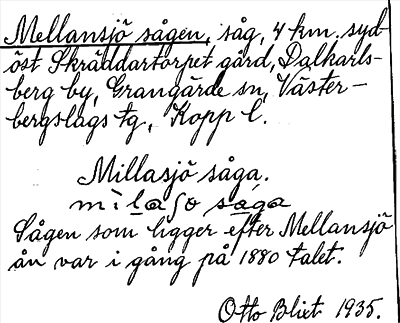 Mellansjö sågen, såg, 4 km. syd-
öst Skräddartorpet gård, Dalkarls-
berg by, Grangärde sn, Väster-
bergslags tg, Kopp l.
Millasjö såga.
mìlaʃö såga
Sågen som ligger efter Mellansjö
ån var i gång på 1880 talet.
Otto Blixt 1935.